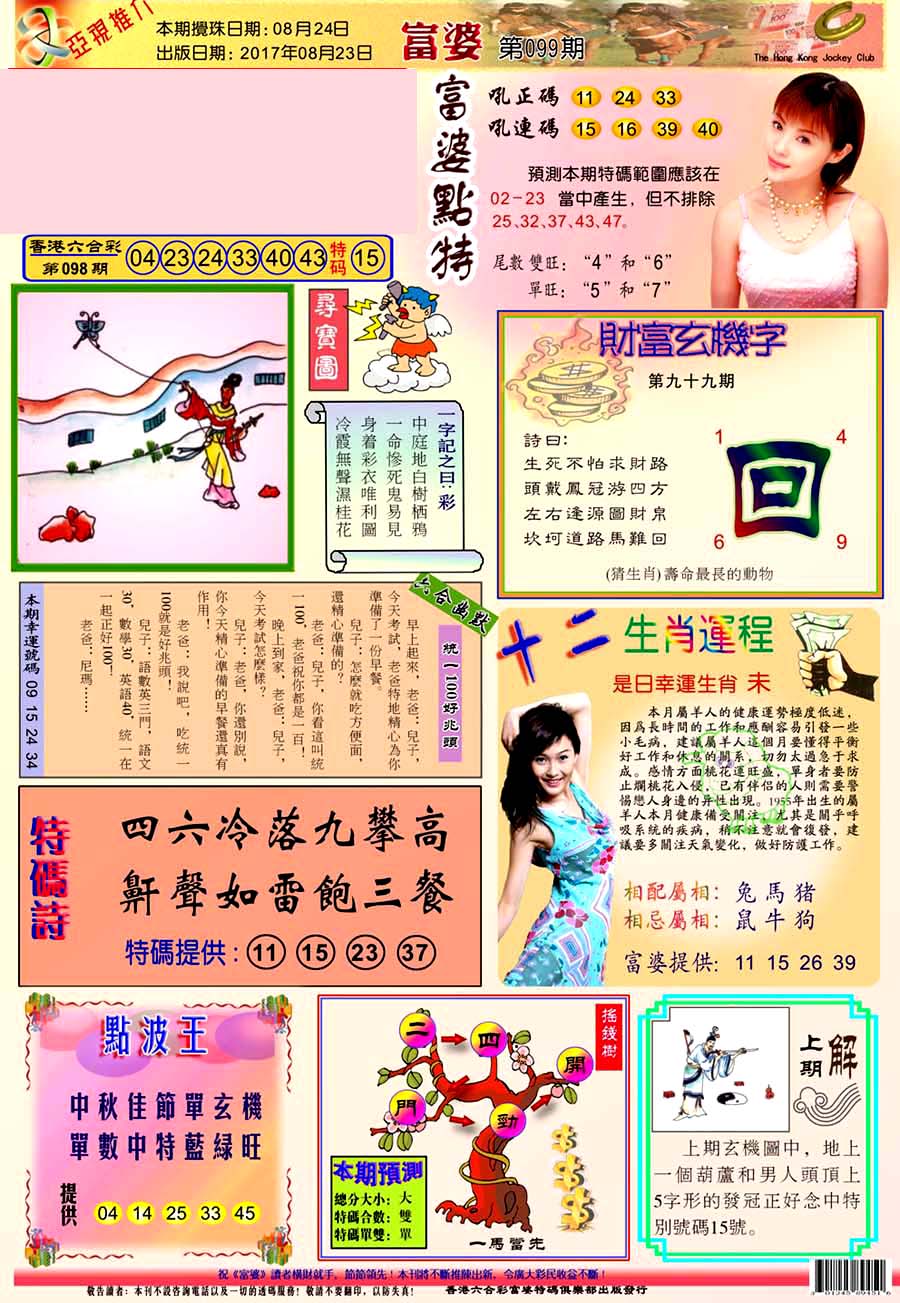 亞視推介
本期攪珠日期：08月24日
出版日期：2017年08月23日
富婆 第099期
The Hong Kong Jockey Club
富婆點特
吼正碼 11 24 33
吼連碼 15 16 39 40
預測本期特碼範圍應該在
02－23 當中產生，但不排除
25、32、37、43、47。
尾數雙旺：“4”和“6”
單旺：“5”和“7”
香港六合彩
第098期
04 23 24 33 40 43 特码 15
尋寶圖
一字記之曰：彩
中庭地白樹栖鴉
一命慘死鬼易見
身着彩衣唯利圖
冷霞無聲濕桂花
財富玄機字
第九十九期
詩曰：
生死不怕求財路
頭戴鳳冠游四方
左右逢源圖財帛
坎坷道路馬難回
1 4
回
6 9
(猜生肖)壽命最長的動物
六合幽默
統一100好兆頭
早上起來，老爸：兒子，
今天考試，老爸特地精心為你
準備了一份早餐。
兒子：怎麼就吃方便面，
還精心準備的？
老爸：兒子，你看這叫統
一100，老爸祝你都是一百，
晚上到家，老爸：兒子，
今天考試怎麼樣？
兒子：老爸，你還別說，
你今天精心準備的早餐還真有
作用！
老爸：我說吧，吃統一
100就是好兆頭！
兒子：語數英三門，語文
30，數學30，英語40，統一在
一起正好100！
老爸：尼瑪……
本期幸運號碼 09 15 24 34
十二生肖運程
是日幸運生肖 未
本月屬羊人的健康運勢極度低迷，
因爲長時間的工作和應酬容易引發一些
小毛病，建議屬羊人這個月要懂得平衡
好工作和休息的關系，切勿太過急于求
成。感情方面桃花運旺盛，單身者要防
止爛桃花入侵，已有伴侶的人則需要警
惕戀人身邊的异性出現。1955年出生的屬
羊人本月健康備受關注，尤其是關乎呼
吸系統的疾病，稍不注意就會復發，建
議要多關注天氣變化，做好防護工作。
相配屬相：兔 馬 猪
相忌屬相：鼠 牛 狗
富婆提供：11 15 26 39
特碼詩
四六冷落九攀高
鼾聲如雷飽三餐
特碼提供：11 15 23 37
點波王
中秋佳節單玄機
單數中特藍緑旺
提供 04 14 25 33 45
搖錢樹
二 四 開
門 勁
本期預測
總分大小：大
特碼合數：雙
特碼單雙：單
一馬當先
上期解
上期玄機圖中，地上
一個葫蘆和男人頭頂上
5字形的發冠正好念中特
別號碼15號。
祝《富婆》讀者橫財就手，節節領先！本刊將不斷推陳出新，令廣大彩民收益不斷！
敬告讀者：本刊不設咨詢電話以及一切的透碼服務！敬請不要翻印，以防失真！
香港六合彩富婆特碼俱樂部出版發行